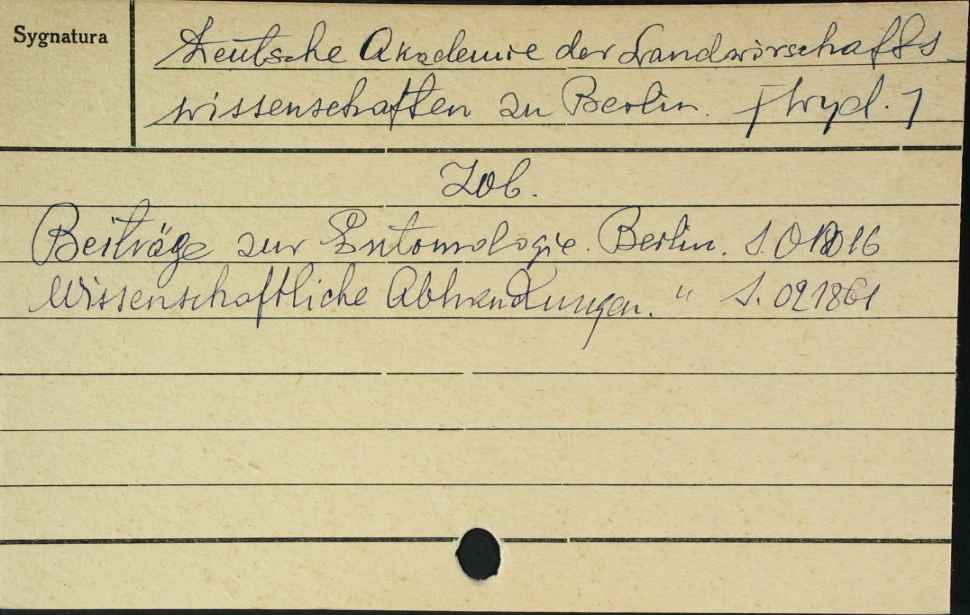 Sygnatura
Deutsche Akademie der Landwirschafts-
wissenschaften zu Berlin. [wyd.]
Zob.
Beiträge zur Entomologie. Berlin. S.
Wissenschaftliche Abhandlungen. " S. 021861